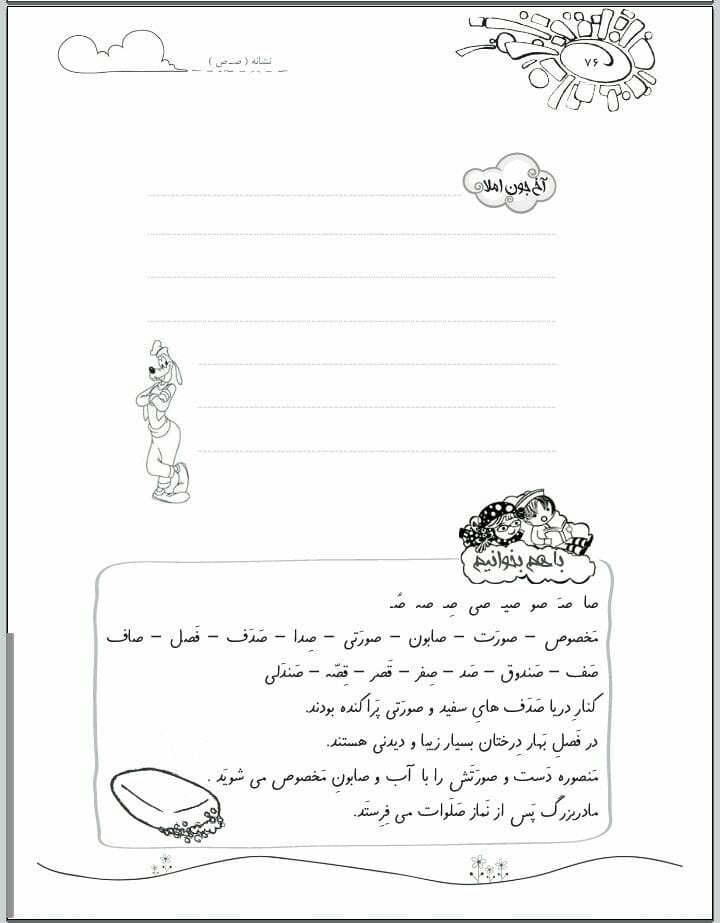 ۷۶
نشانه ( صـ ص )
آخ جون املا
با هم بخوانیم
صا صَـ صو صیـ صی صِـ صه صُـ
مَخصوص – صورَت – صابون – صورَتی – صِدا – صَدَف – فَصل – صاف
صَف – صَندوق – صَد – صِفر – قَصر – قِصّه – صَندَلی
کنارِ دریا صَدَف هایِ سفید و صورَتی پَراکنده بودند.
در فَصلِ بَهار دِرختان بسیار زیبا و دیدنی هستند.
مَنصوره دَست و صورَتَش را با آب و صابونِ مَخصوص می شویَد .
مادربزرگ پَس از نَماز صَلَوات می فِرِستَد.